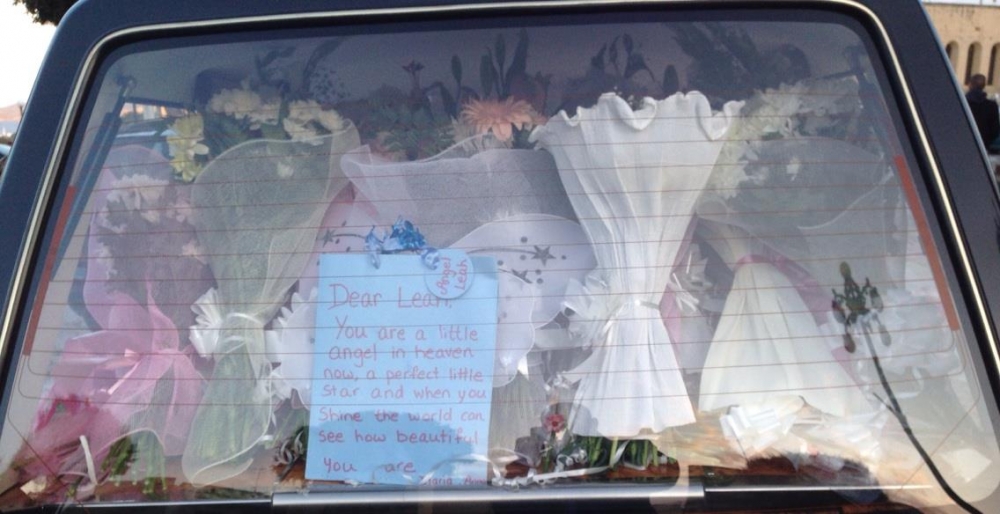 Angel
Leah
Dear Leah,
You are a little
angel in heaven
now, a perfect little
Star and when you
Shine the world can
see how beautiful
you are
Maria